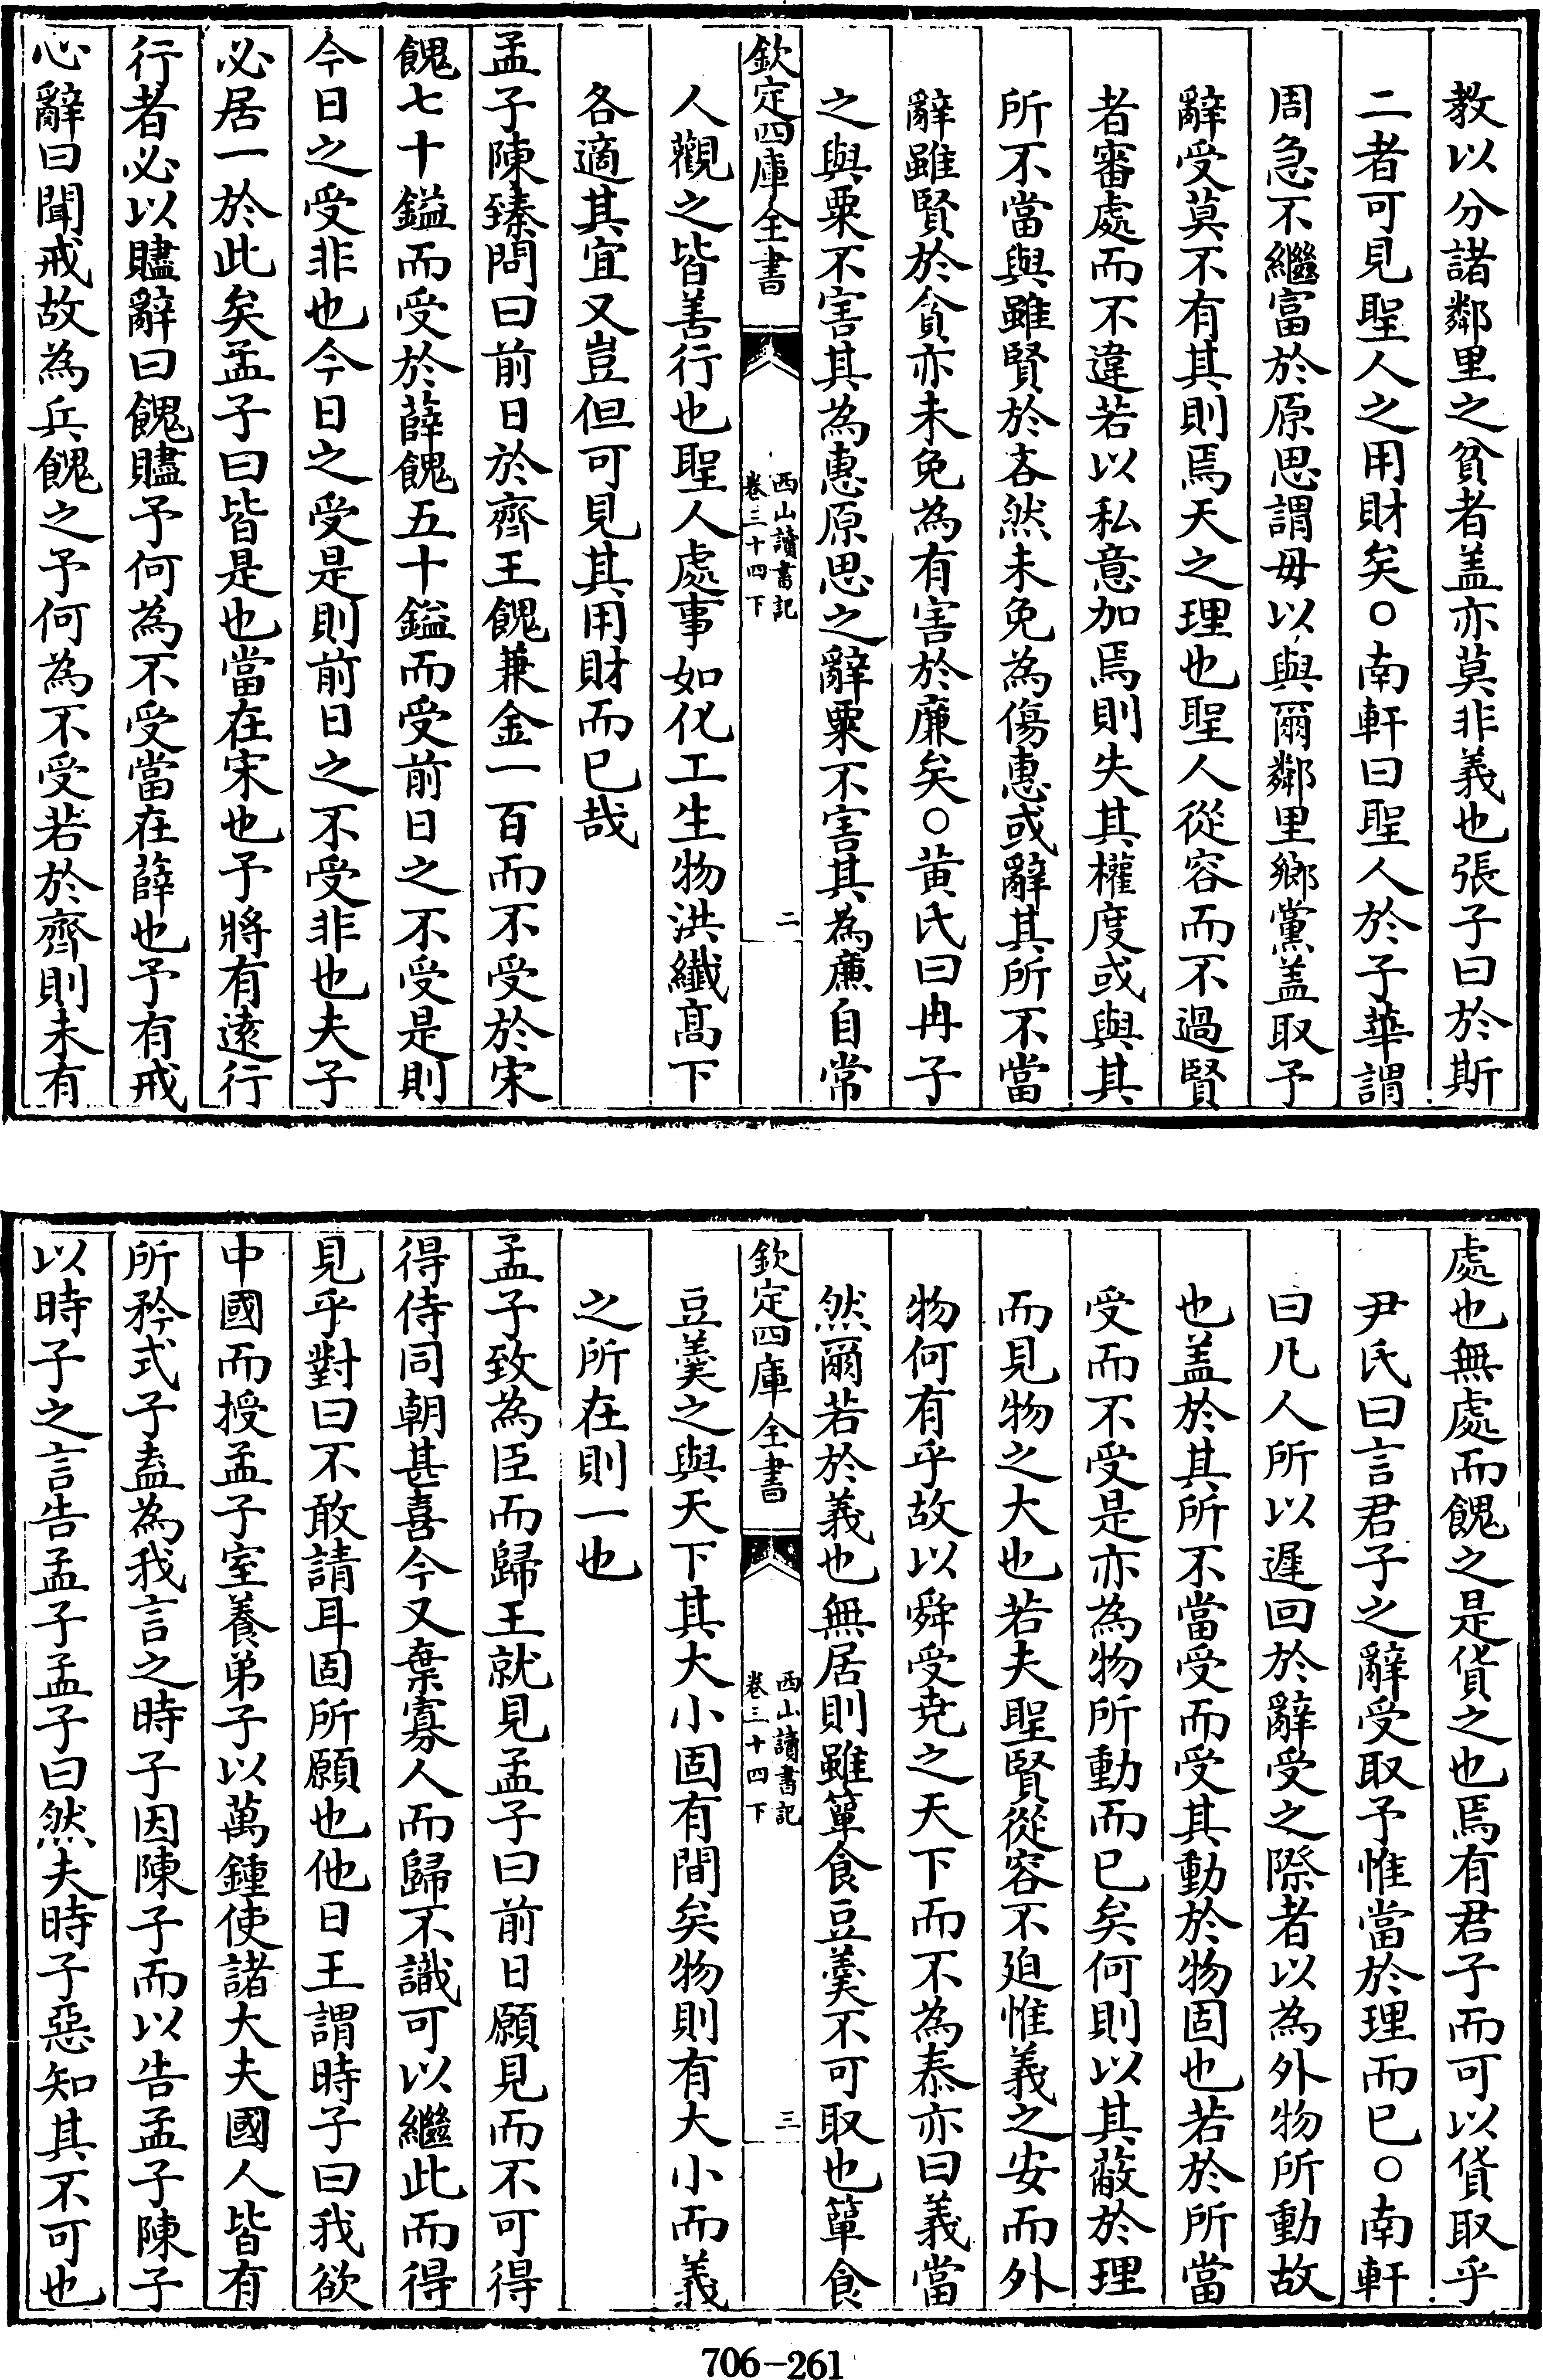 教以分諸鄰里之貧者盖亦莫非義也張子曰於斯
二者可見聖人之用財矣○南軒曰聖人於子華謂
周急不繼富於原思謂毋以與爾鄰里鄉黨盖取予
辭受莫不有其則焉天之理也聖人從容而不過賢
者審處而不違若以私意加焉則失其權度或與其
所不當與雖賢於吝然未免為傷惠或辭其所不當
辭雖賢於貪亦未免為有害於廉矣○黃氏曰冉子
之與粟不害其為惠原思之辭粟不害其為廉自常
欽定四庫全書
西山讀書記
卷三十四下
二
人觀之皆善行也聖人處事如化工生物洪纖高下
各適其宜又豈但可見其用財而已哉
孟子陳臻問曰前日於齊王餽兼金一百而不受於宋
餽七十鎰而受於薛餽五十鎰而受前日之不受是則
今日之受非也今日之受是則前日之不受非也夫子
必居一於此矣孟子曰皆是也當在宋也予將有遠行
行者必以贐辭曰餽贐予何為不受當在薛也予有戒
心辭曰聞戒故為兵餽之予何為不受若於齊則未有
處也無處而餽之是貨之也焉有君子而可以貨取乎
尹氏曰言君子之辭受取予惟當於理而已○南軒
曰凡人所以遲回於辭受之際者以為外物所動故
也盖於其所不當受而受其動於物固也若於所當
受而不受是亦為物所動而已矣何則以其蔽於理
而見物之大也若夫聖賢從容不廹惟義之安而外
物何有乎故以舜受堯之天下而不為泰亦曰義當
然爾若於義也無居則雖簞食豆羹不可取也簞食
欽定四庫全書
西山讀書記
卷三十四下
三
豆羹之與天下其大小固有間矣物則有大小而義
之所在則一也
孟子致為臣而歸王就見孟子曰前日願見而不可得
得侍同朝甚喜今又棄寡人而歸不識可以繼此而得
見乎對曰不敢請耳固所願也他日王謂時子曰我欲
中國而授孟子室養弟子以萬鍾使諸大夫國人皆有
所矜式子盍為我言之時子因陳子而以告孟子陳子
以時子之言告孟子孟子曰然夫時子惡知其不可也
706-261